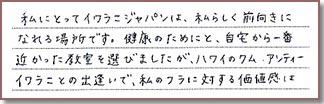 私にとってイワラニジャパンは、私らしく前向きに
なれる場所です。健康のためにと、自宅から一番
近かった教室を選びましたが、ハワイのクム、アンティー
イワラニとの出逢いで、私のフラに対する価値感は